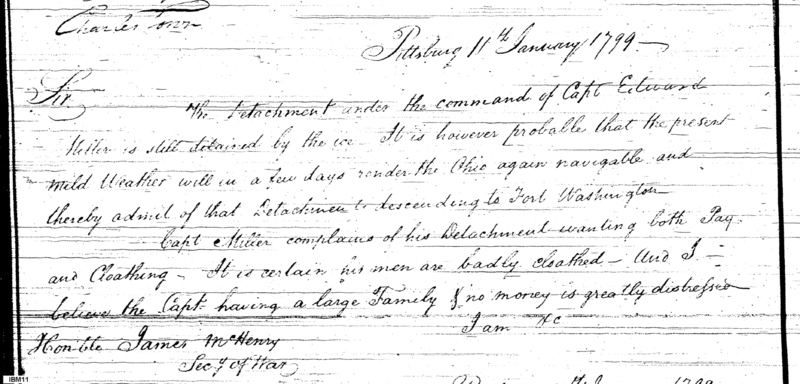 Charles Town
Pittsburg 11th January 1799 —
Sir
The Detachment under the command of Capt Edward
Miller is still detained by the ice. It is however probable that the present
mild Weather will in a few days render the Ohio again navigable and
thereby admit of that Detachment descending to Fort Washington
Capt Miller complains of his Detachment wanting both Pay
and Cloathing — It is certain his men are badly cloathed — And I —
believe the Capt having a large Family & no money is greatly distressed
I am &c
Honble James McHenry
Secy of War
1799
IBM11